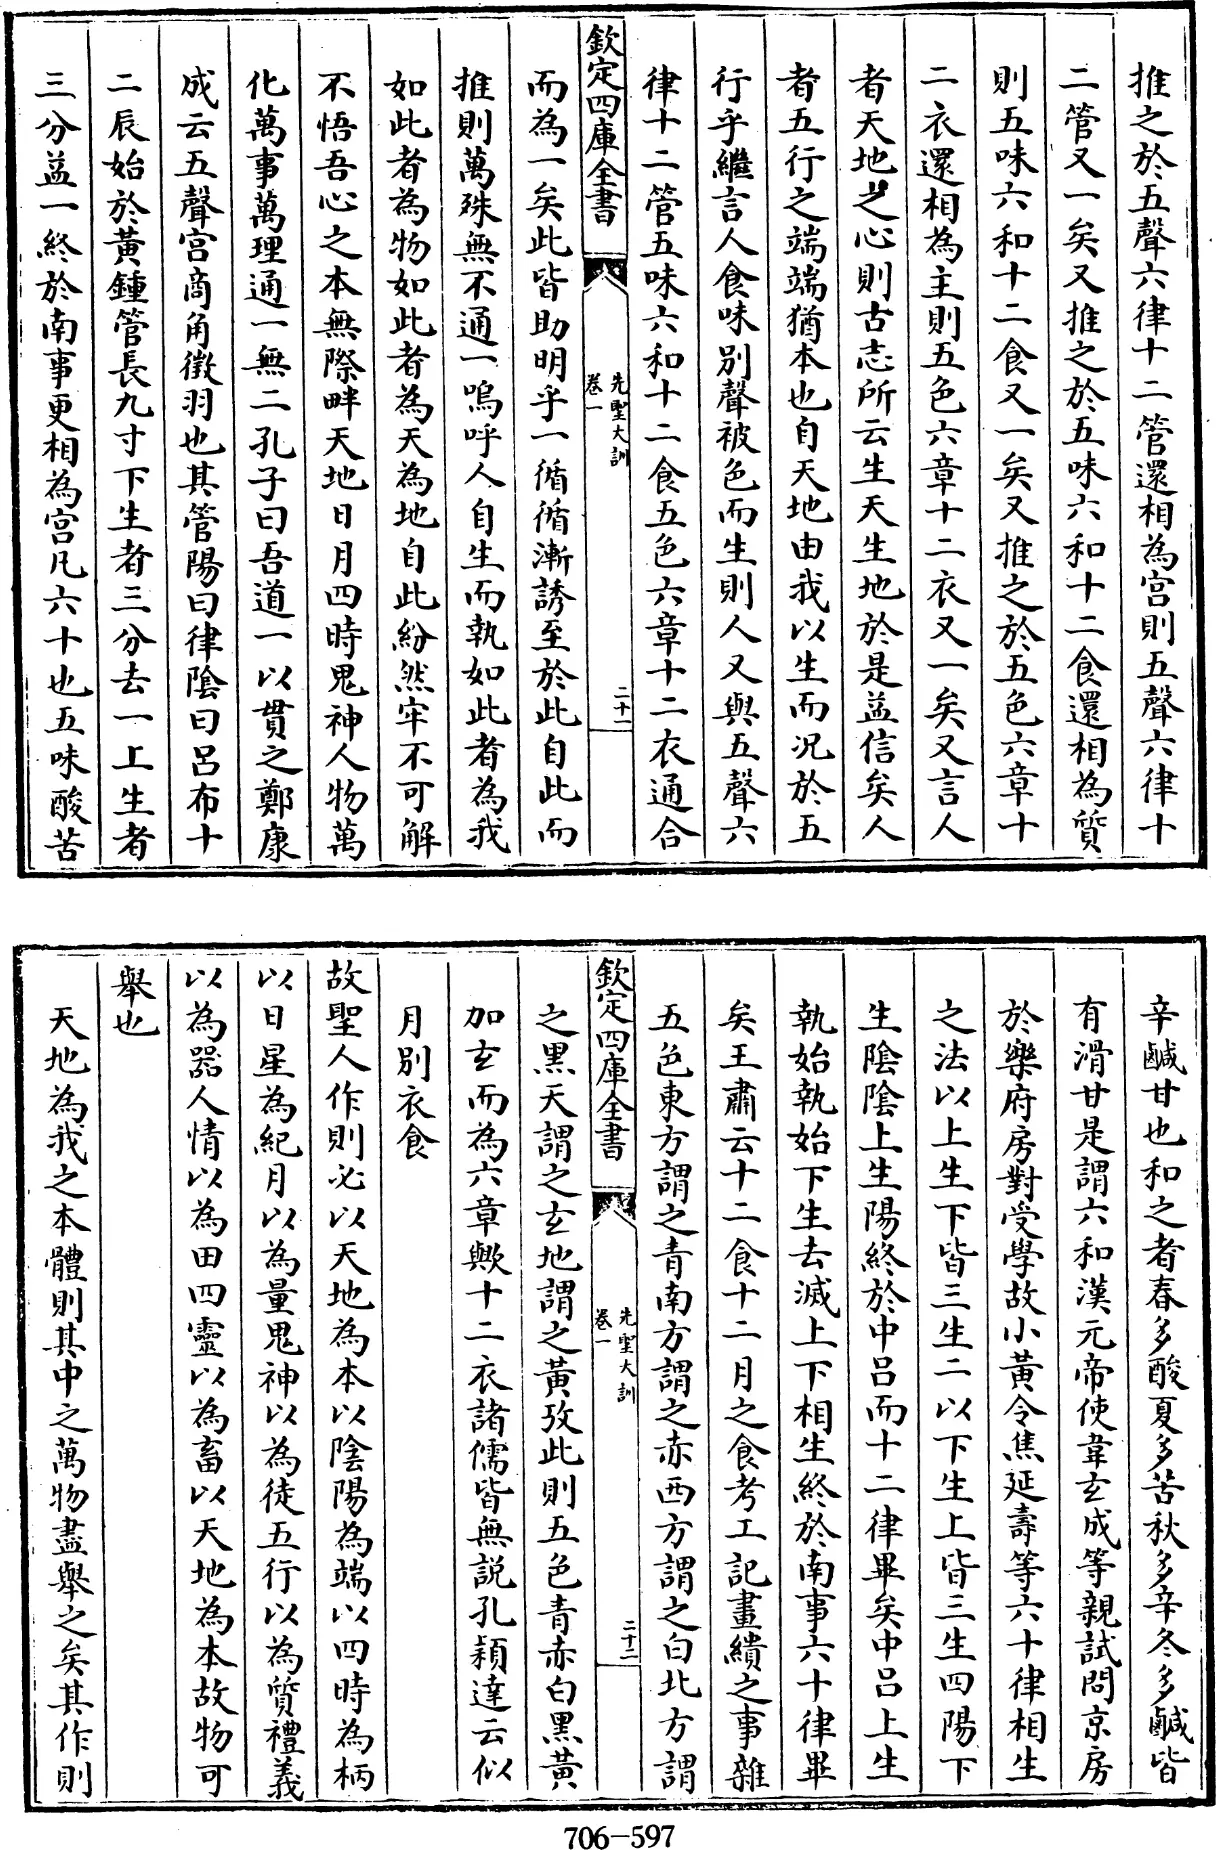 推之於五聲六律十二管還相為宮則五聲六律十
二管又一矣又推之於五味六和十二食還相為質
則五味六和十二食又一矣又推之於五色六章十
二衣還相為主則五色六章十二衣又一矣又言人
者天地之心則古志所云生天生地於是益信矣人
者五行之端端猶本也自天地由我以生而況於五
行乎繼言人食味別聲被色而生則人又與五聲六
律十二管五味六和十二食五色六章十二衣通合
欽定四庫全書
先聖大訓
卷一
二十一
而為一矣此皆助明乎一循循漸誘至於此自此而
推則萬殊無不通一嗚呼人自生而執如此者為我
如此者為物如此者為天為地自此紛然牢不可解
不悟吾心之本無際畔天地日月四時鬼神人物萬
化萬事萬理通一無二孔子曰吾道一以貫之鄭康
成云五聲宮商角徵羽也其管陽曰律陰曰呂布十
二辰始於黃鍾管長九寸下生者三分去一上生者
三分益一終於南事更相為宮凡六十也五味酸苦
辛鹹甘也和之者春多酸夏多苦秋多辛冬多鹹皆
有滑甘是謂六和漢元帝使韋玄成等親試問京房
於樂府房對受學故小黃令焦延壽等六十律相生
之法以上生下皆三生二以下生上皆三生四陽下
生陰陰上生陽終於中呂而十二律畢矣中呂上生
執始執始下生去滅上下相生終於南事六十律畢
矣王肅云十二食十二月之食考工記畫繢之事雜
五色東方謂之青南方謂之赤西方謂之白北方謂
欽定四庫全書
先聖大訓
卷一
二十二
之黑天謂之玄地謂之黃攷此則五色青赤白黑黃
加玄而為六章歟十二衣諸儒皆無說孔穎達云似
月別衣食
故聖人作則必以天地為本以陰陽為端以四時為柄
以日星為紀月以為量鬼神以為徒五行以為質禮義
以為器人情以為田四靈以為畜以天地為本故物可
舉也
天地為我之本體則其中之萬物盡舉之矣其作則
706-597